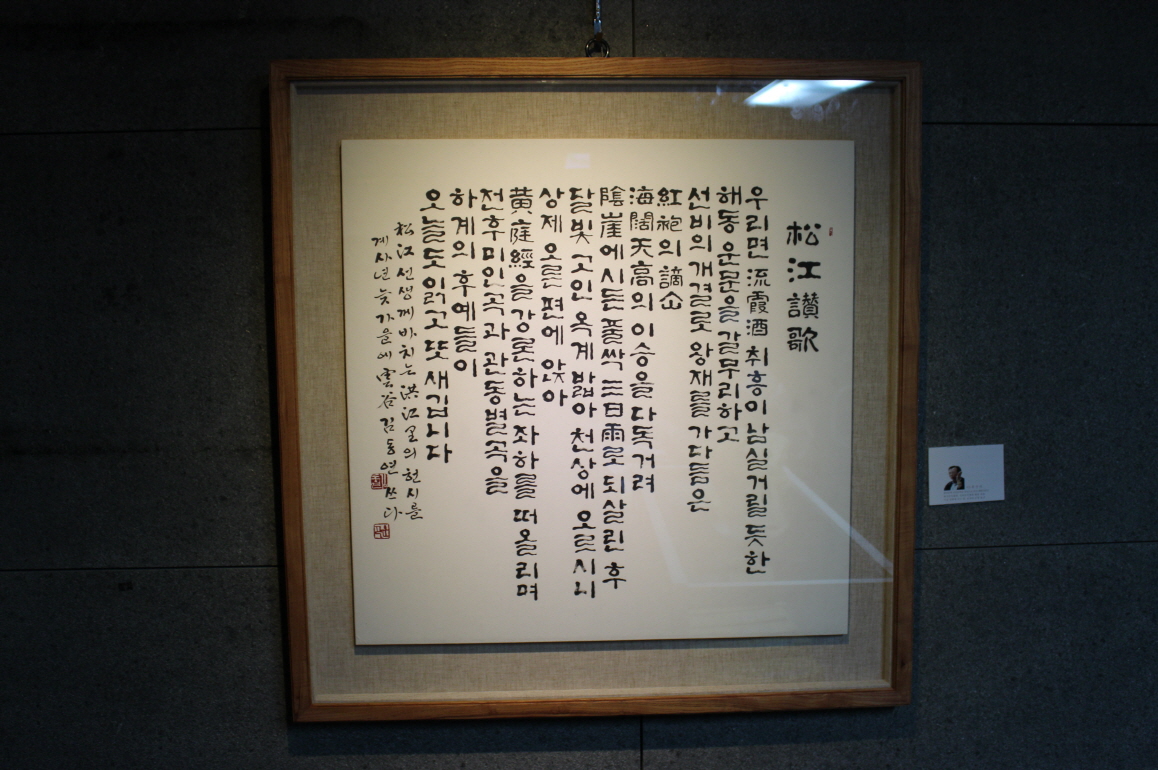 松江讃歌
우리면 流霞酒 취흥이 남실거릴 듯한
해동 운문을 갈무리하고
선비의 개결로 왕재를 가다듬은
紅袍의 謫仚
海闊天高의 이승을 다독거려
陰崖에 시든 풀싹 三日雨로 되살린 후
달빛 고인 옥계 밟아 천상에 오르시니
상제 오른편에 앉아
黃庭經을 강론하는 좌하를 떠올리며
전후미인곡과 관동별곡을
하계의 후예들이
오늘도 읽고 또 새깁니다
松江선생께 바치는 洪江
의 헌시를
계사년 늦가을에 雲谷 김동연 쓰다